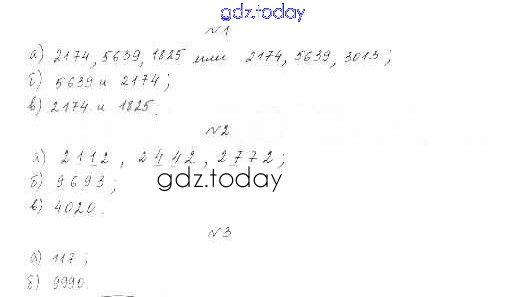 gdz.today
№1
а) 2174, 5639, 1825 или 2174, 5639, 3013;
б) 5639 и 2174;
в) 2174 и 1825.
№2
а) 2112, 2442, 2772;
б) 9693;
gdz.today
в) 4020.
№3
а) 117;
б) 9990.